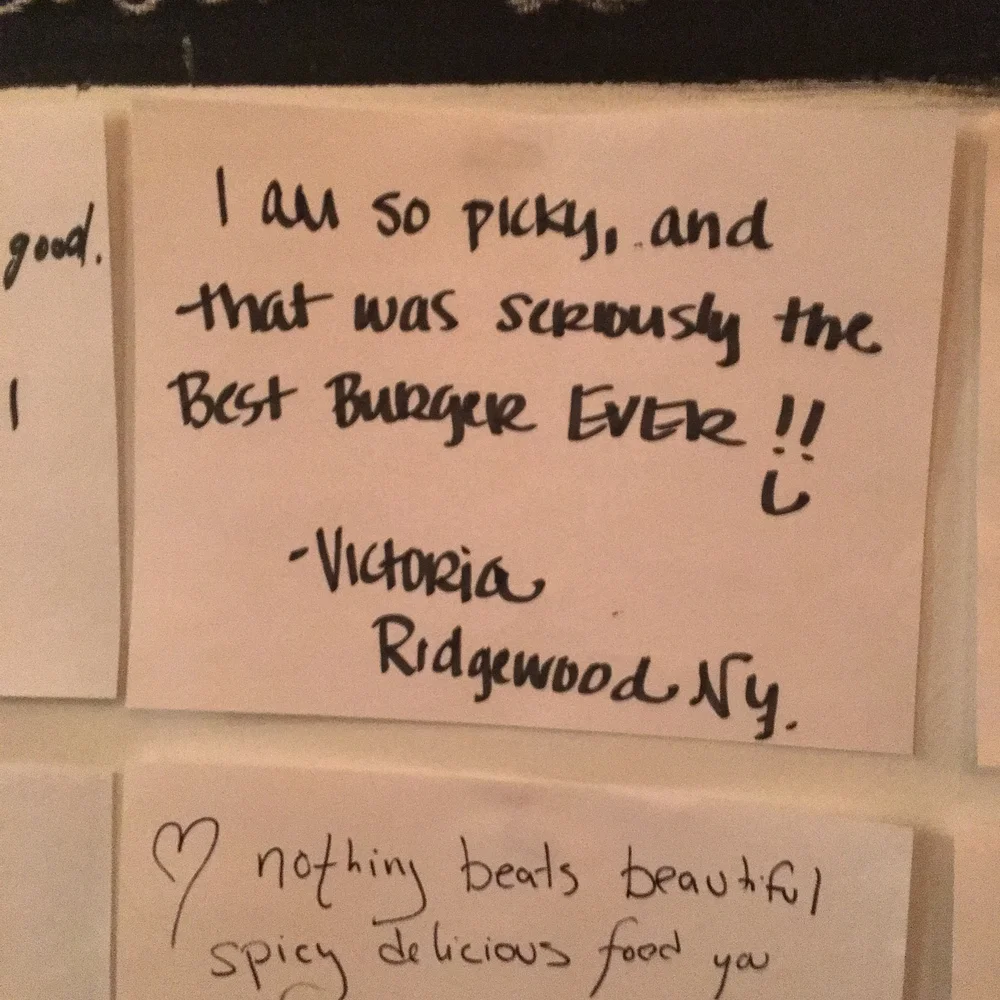 good.
I am so picky, and
that was seriously the
Best Burger EVER !!
-Victoria
Ridgewood NY.
♡ nothing beats beautiful
spicy delicious food you